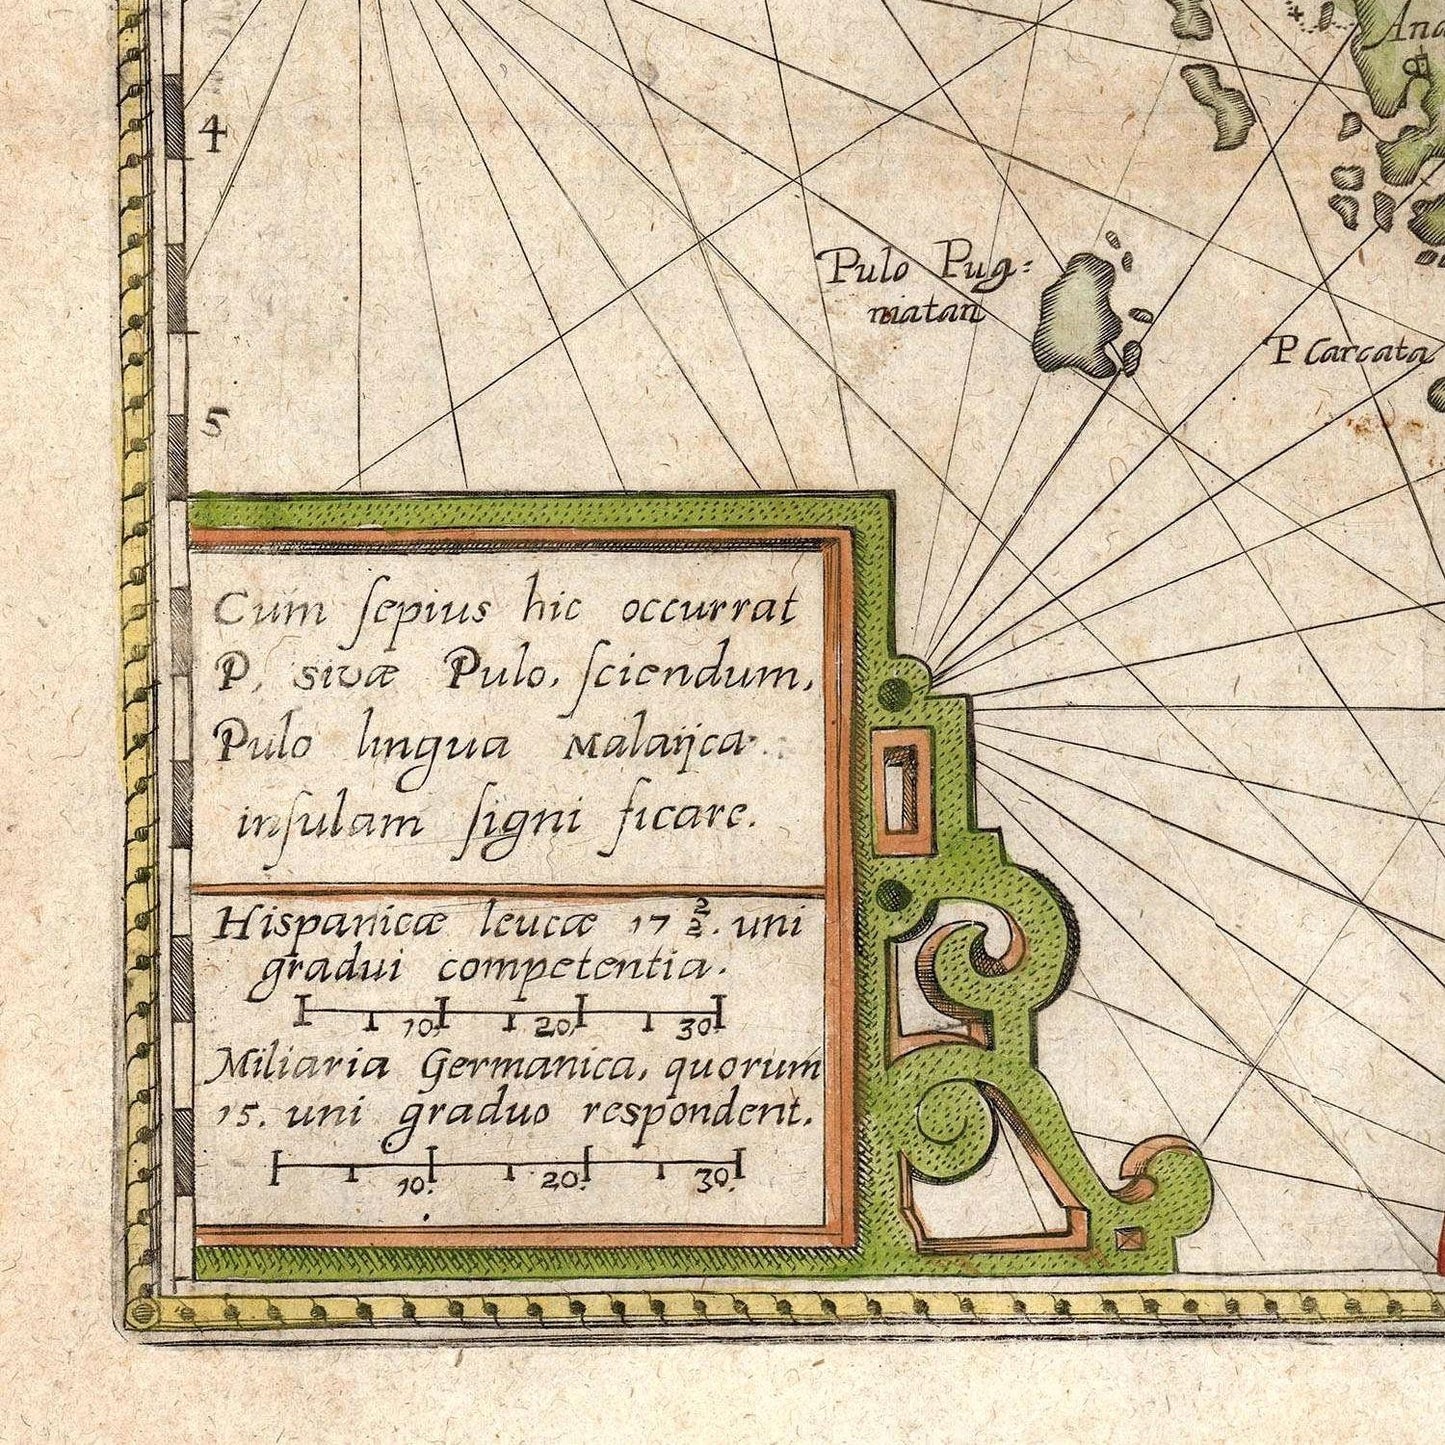 4
And
Pulo Pug=
niatan
P Carcata
5
Cum ſepius hic occurrat
P, sivæ Pulo, ſciendum,
Pulo lingua Malaijca
inſulam ſigni ficare.
Hispanicæ leucæ 17 2/2. uni
gradui competentia.
10. 20. 30.
Miliaria Germanica, quorum
15. uni graduo respondent.
10. 20. 30.